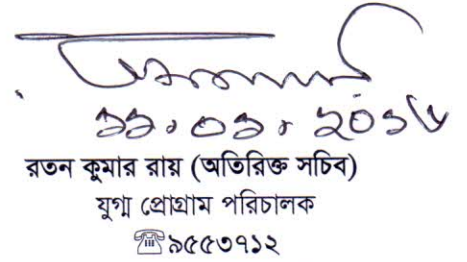 ১১.০১.২০১৬
রতন কুমার রায় (অতিরিক্ত সচিব)
যুগ্ম প্রোগ্রাম পরিচালক
☎৯৫৫৩৭১২